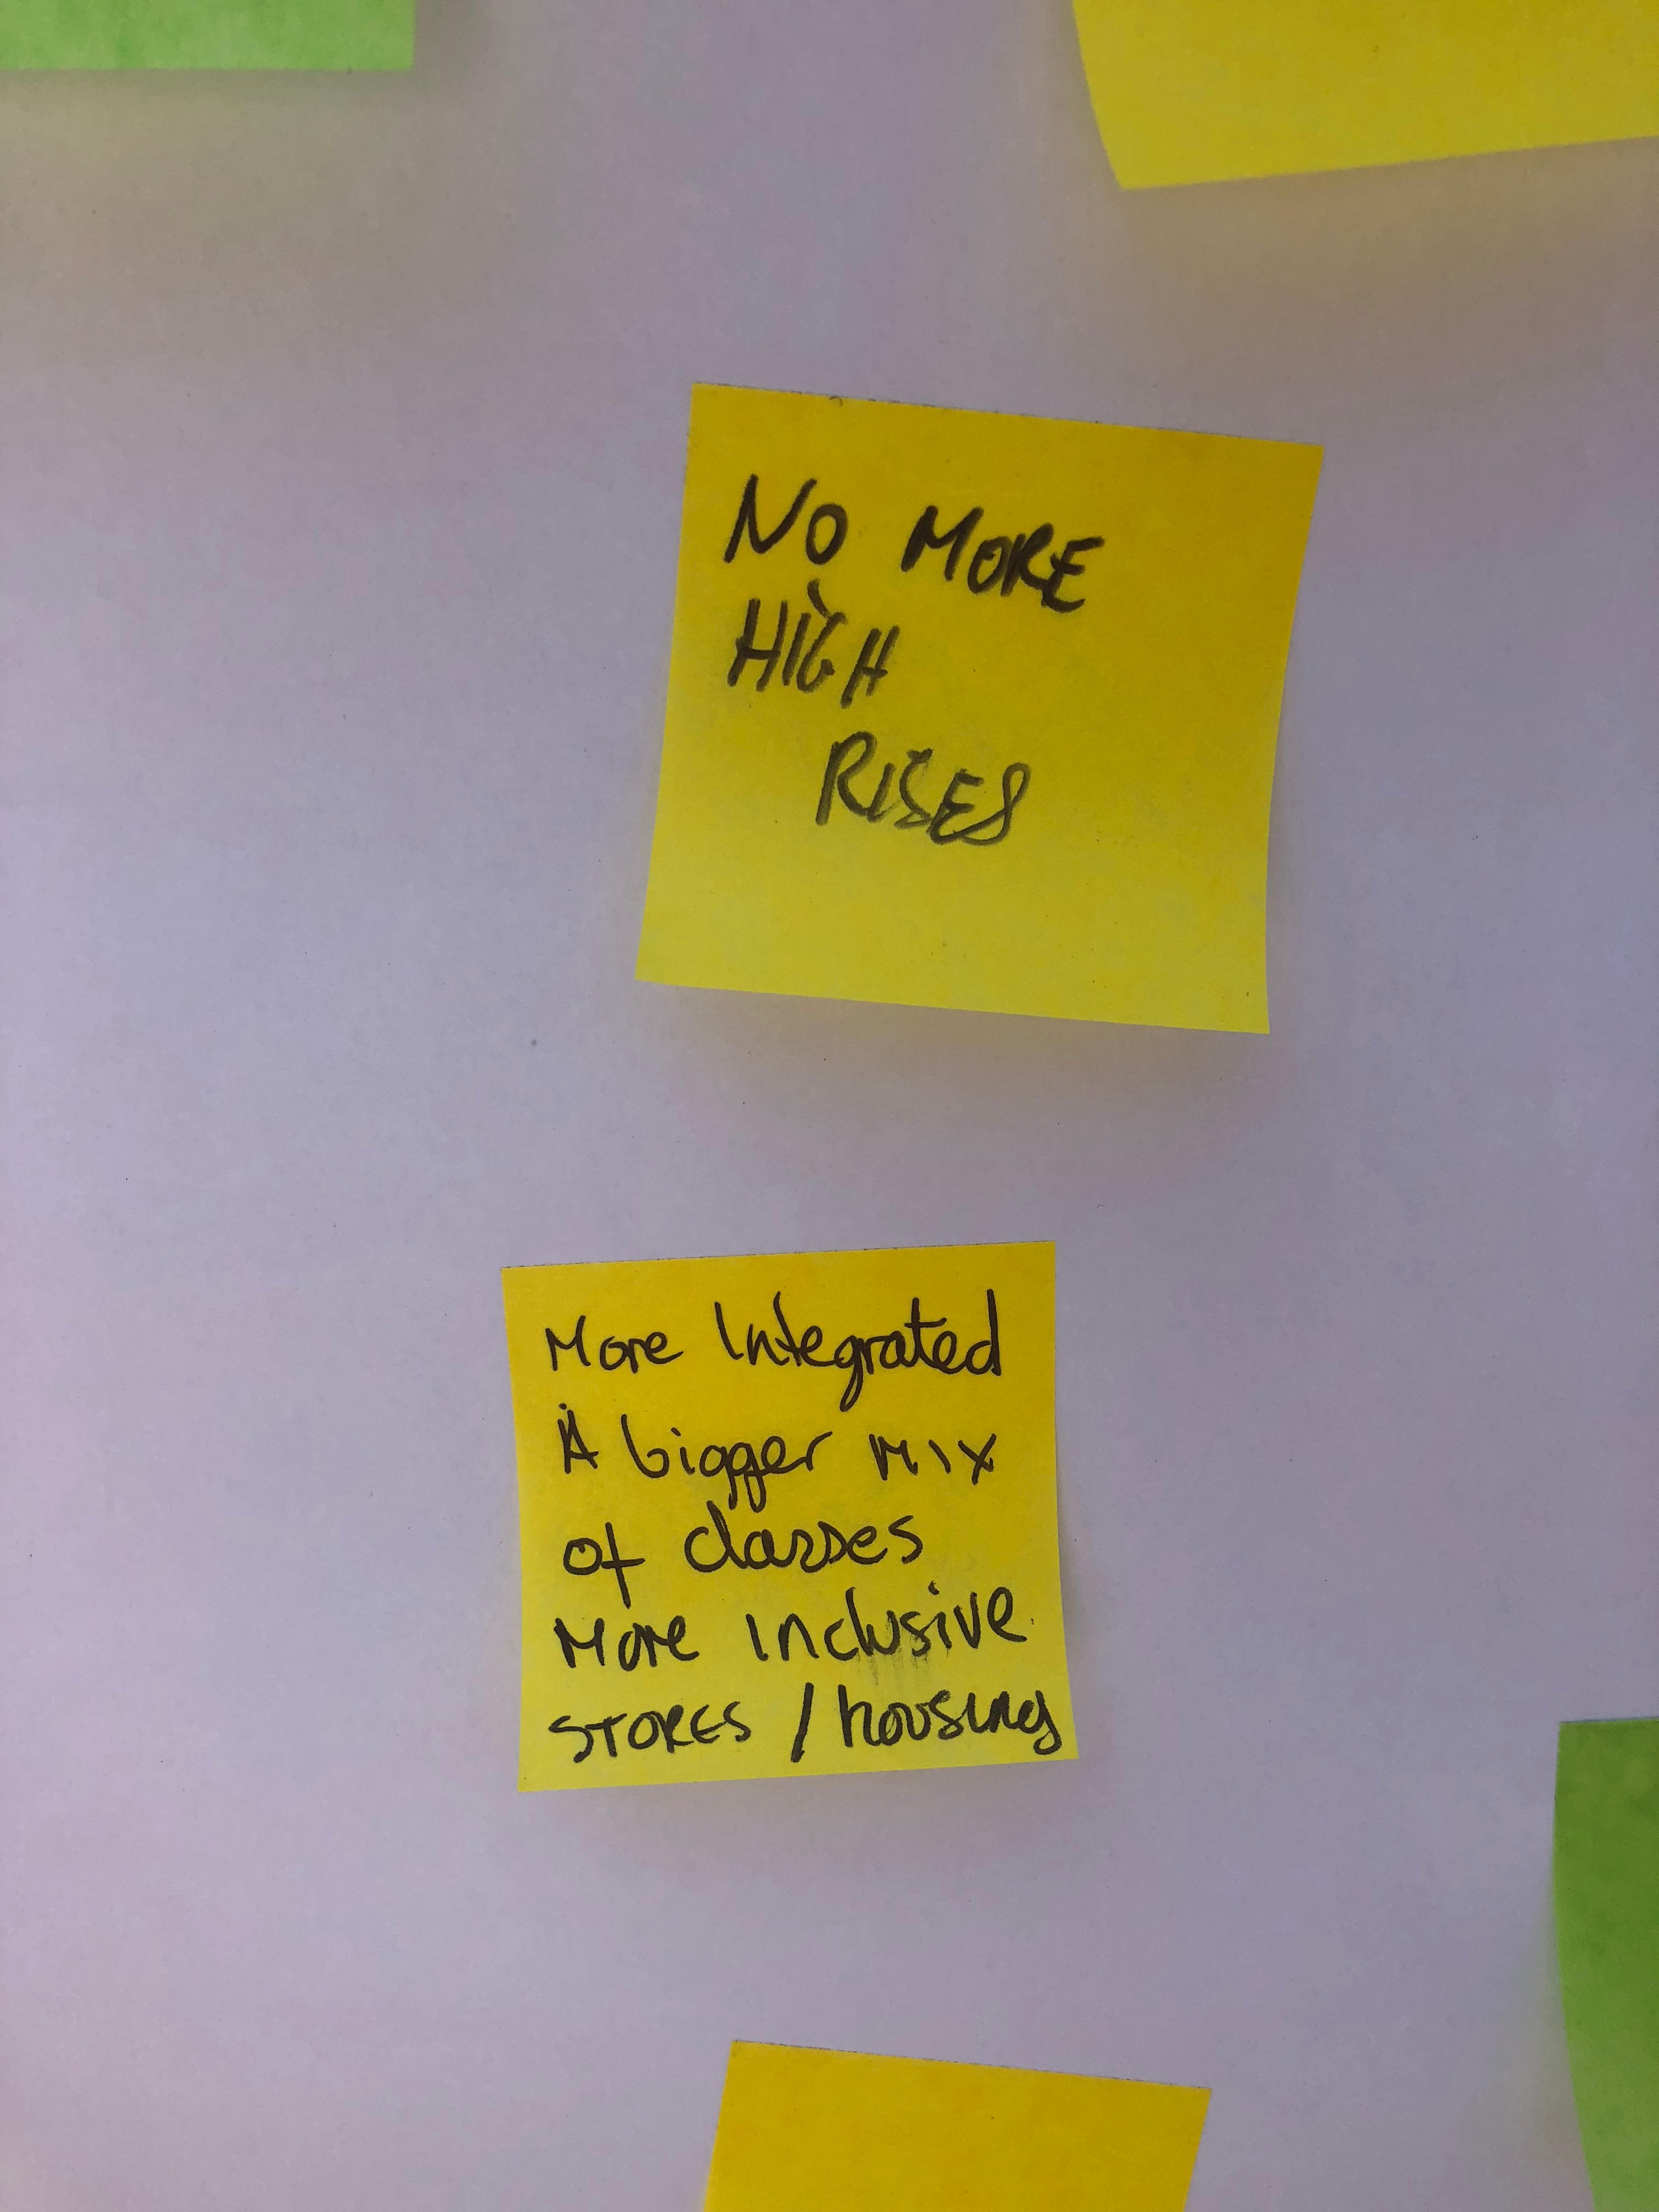 NO MORE
HIGH
RISES
More Integrated
A bigger MIX
of classes
More inclusive
STORES / housing